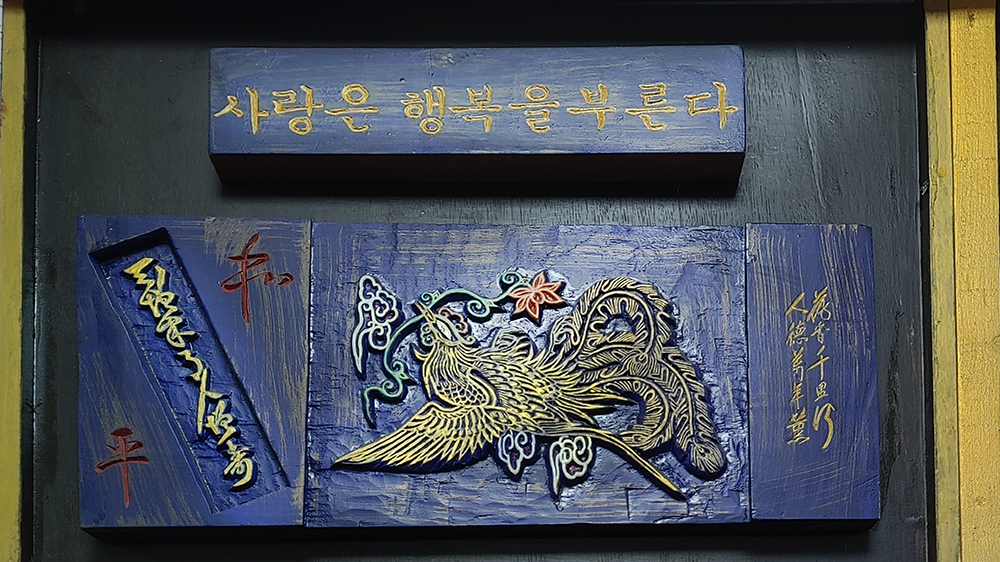 사랑은 행복을 부른다
和
平
花香千里行
人德萬年薰